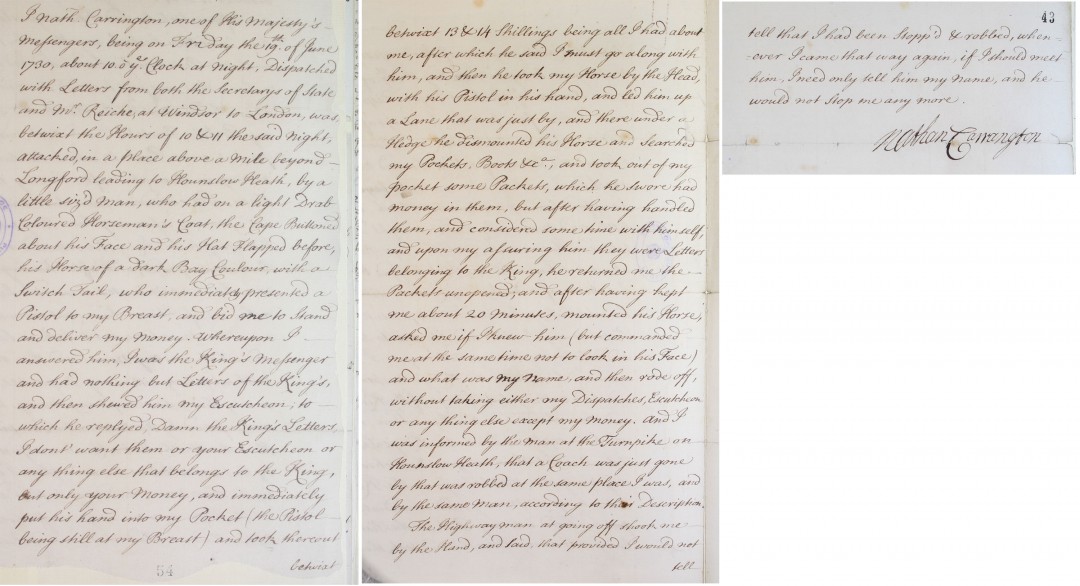 I Nath. Carrington, one of His Majesty's
Messengers, being on Friday the 19th. of June
1730, about 10. o' ye. Clock at Night, Dispatched
with Letters from both the Secretarys of State
and Mr. Reiche, at Windsor to London, was
betwixt the Hours of 10 & 11 the said Night,
attacked, in a place above a Mile beyond
Longford leading to Hounslow Heath, by a
little siz'd Man, who had on a light Drab
Coloured Horseman's Coat, the Cape Buttoned
about his Face and his Hat Flapped before,
his Horse of a dark Bay Coulour, with a
Switch Tail, who immediately presented a
Pistol to my Breast, and bid me to Stand
and deliver my Money. Whereupon I
answered him, I was the King's Messenger
and had nothing but Letters of the King's,
and then shewed him my Escutcheon; to
which he replyed, Damn the King's Letters
I dont' want them or your Escutcheon or
any thing else that belongs to the King,
but only your Money, and immediately
put his hand into my Pocket (the Pistol
being still at my Breast) and took thereout
betwixt
54
betwixt 13 & 14 Shillings being all I had about
me, after which he said I must go along with
him, and then he took my Horse by the Head,
with his Pistol in his hand, and led him up
a Lane that was just by, and there under a
Hedge he dismounted his Horse and Searched
my Pockets, Boots &ca., and took out of my
pocket some Packets, which he swore had
money in them, but after having handled
them, and considered some time with himself,
and upon my assuring him they were Letters
belonging to the King, he returned me the
Packets unopened; and after having kept
me about 20 Minutes, mounted his Horse,
asked me if I knew him (but commanded
me at the same time not to look in his Face)
and what was my Name, and then rode off,
without taking either my Dispatches, Escutcheon
or any thing else except my Money. And I
was informed by the man at the Turnpike on
Hounslow Heath, that a Coach was just gone
by that was robbed at the same place I was, and
by the same Man, according to their Description.
The Highwayman at going off shook me
by the Hand, and said, that provided I would not
tell
43
tell that I had been Stopp'd & robbed, when=
=ever I came that way again, if I should meet
him, I need only tell him my Name, and he
would not Stop me any more.
Nathan Carrington